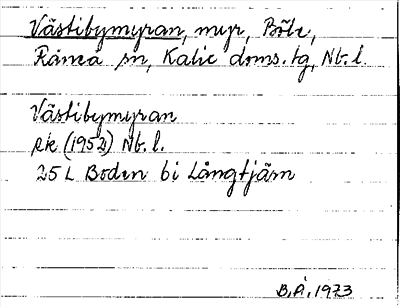 Västibymyran, myr, Böle,
Råneå sn, Kalix doms. tg, Nb. l.
Västibymyran
ek (1952) Nb. l.
25 L Boden bi Långtjärn
B, Å, 1973